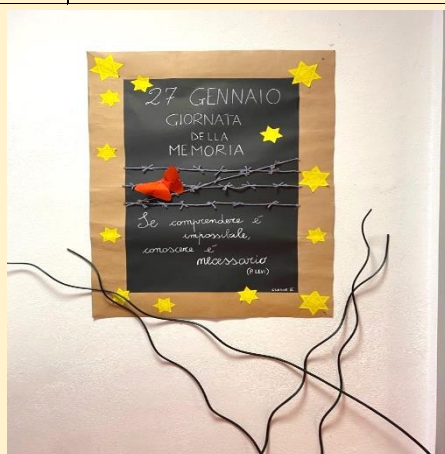 27 GENNAIO
GIORNATA
DELLA
MEMORIA
Se comprendere é
impossibile,
conoscere é
necessario
(P. LEVI)